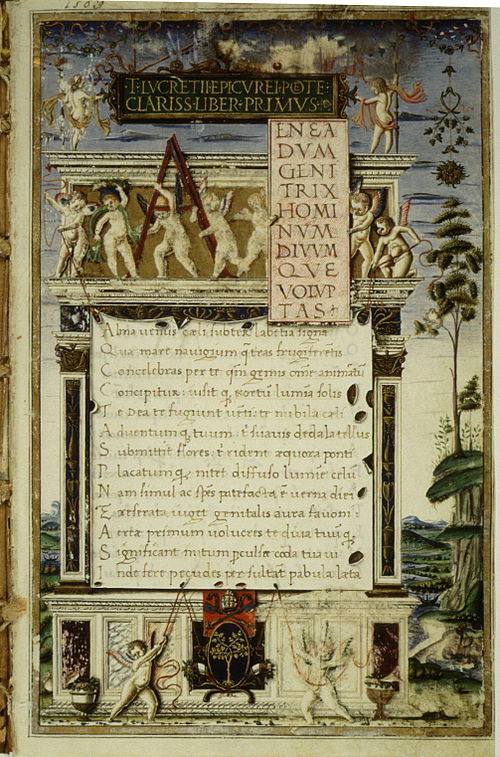 1569
T·LVCRETII·EPICVREI·POETE·
CLARISS·LIBER·PRIMVS·
A
ENEA
DVM
GENI
TRIX
HOMI
NVM
DIVVM
QVE
VOLVP
TAS
Alma uenus cæli subter labentia signa
Quæ mare nauigium q̃ terras frugiferentis
Concelebras per te qm̃ genus omne animantũ
Concipitur uisit q; exortũ lumina solis
Te Dea te fugiunt uenti te nubila cæli
Aduentum q; tuum t̃ suauis dedala tellus
Submittit flores t̃ rident æquora ponti
Placatum q; nitet diffuso lumine celũ
Nam simul ac spẽs patefacta ẽ uerna diei
Et reserata uiget genitalis aura fauoni
Aeriæ primum uolucres te diua tuũ q;
Significant initum perculsæ corda tua ui
Inde feræ pecudes persultant pabula læta